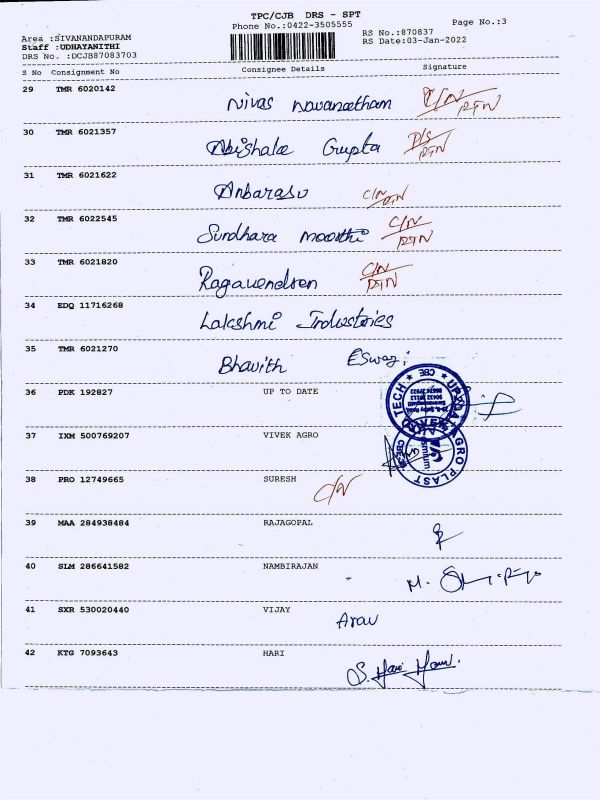 TPC/CJB DRS - SPT
Phone No.:0422-3505555
Page No.:3
Area :SIVANANDAPURAM
Staff :UDHAYANITHI
DRS No. :DCJB87083703
RS No.:870837
RS Date:03-Jan-2022
S No Consignment No Consignee Details Signature
29 TMR 6020142 Nivas Navaneetham C/N RTN
30 TMR 6021357 Abishake Gupta D/S RTN
31 TMR 6021622 Anbarasu C/N RTN
32 TMR 6022545 Sundhara moorthi C/N RTN
33 TMR 6021820 Ragavendren C/N RTN
34 EDQ 11716268 Lakshmi Industries
35 TMR 6021270 Bhavith Eswar
36 PDK 192827 UP TO DATE
37 IXM 500769207 VIVEK AGRO
AGRO PLAST
38 PRO 12749665 SURESH C/N
39 MAA 284938484 RAJAGOPAL
40 SLM 286641582 NAMBIRAJAN
41 SXR 530020440 VIJAY Arav
42 KTG 7093643 HARI